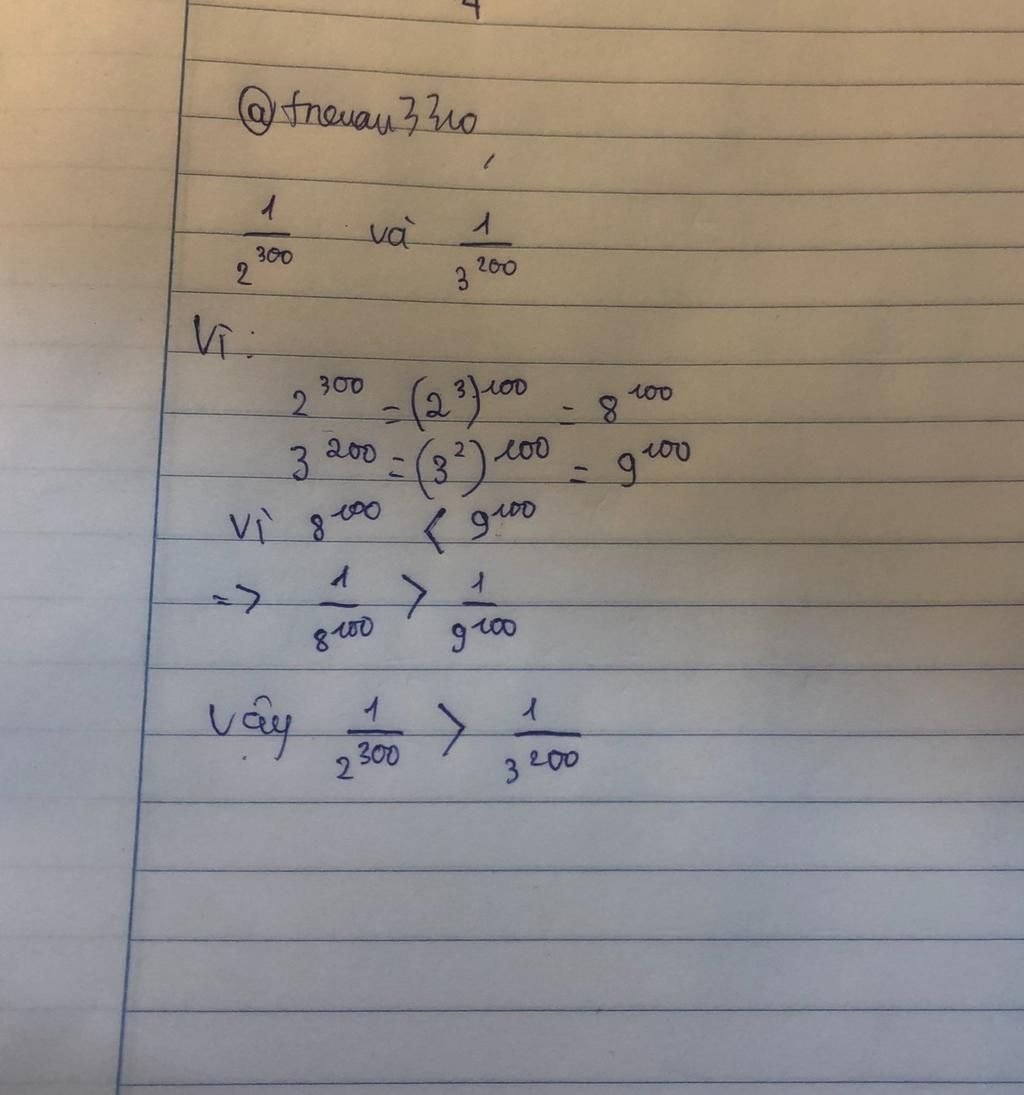 1/2^300 và 1/3^200
Vì:
2^300 = (2^3)^100 = 8^100
3^200 = (3^2)^100 = 9^100
Vì 8^100 < 9^100
=> 1/8^100 > 1/9^100
Vậy 1/2^300 > 1/3^200